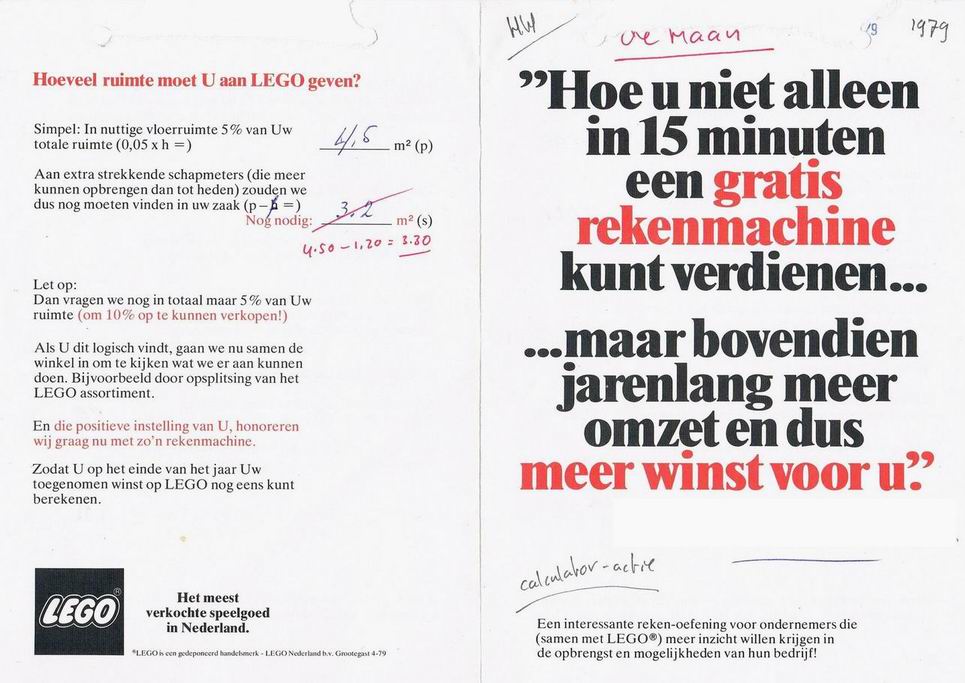 Hoeveel ruimte moet U aan LEGO geven?
Simpel: In nuttige vloerruimte 5% van Uw
totale ruimte (0,05 x h =) 4,5 m² (p)
Aan extra strekkende schapmeters (die meer
kunnen opbrengen dan tot heden) zouden we
dus nog moeten vinden in uw zaak (p – =)
Nog nodig: 3.2 m² (s)
4.50 – 1,20 = 3.30
Let op:
Dan vragen we nog in totaal maar 5% van Uw
ruimte (om 10% op te kunnen verkopen!)
Als U dit logisch vindt, gaan we nu samen de
winkel in om te kijken wat we er aan kunnen
doen. Bijvoorbeeld door opsplitsing van het
LEGO assortiment.
En die positieve instelling van U, honoreren
wij graag nu met zo'n rekenmachine.
Zodat U op het einde van het jaar Uw
toegenomen winst op LEGO nog eens kunt
berekenen.
LEGO®
Het meest
verkochte speelgoed
in Nederland.
®LEGO is een gedeponeerd handelsmerk - LEGO Nederland b.v. Grootegast 4-79
HW
ve Maan
19 1979
”Hoe u niet alleen
in 15 minuten
een gratis
rekenmachine
kunt verdienen...
...maar bovendien
jarenlang meer
omzet en dus
meer winst voor u.”
calculator-actie
Een interessante reken-oefening voor ondernemers die
(samen met LEGO®) meer inzicht willen krijgen in
de opbrengst en mogelijkheden van hun bedrijf!